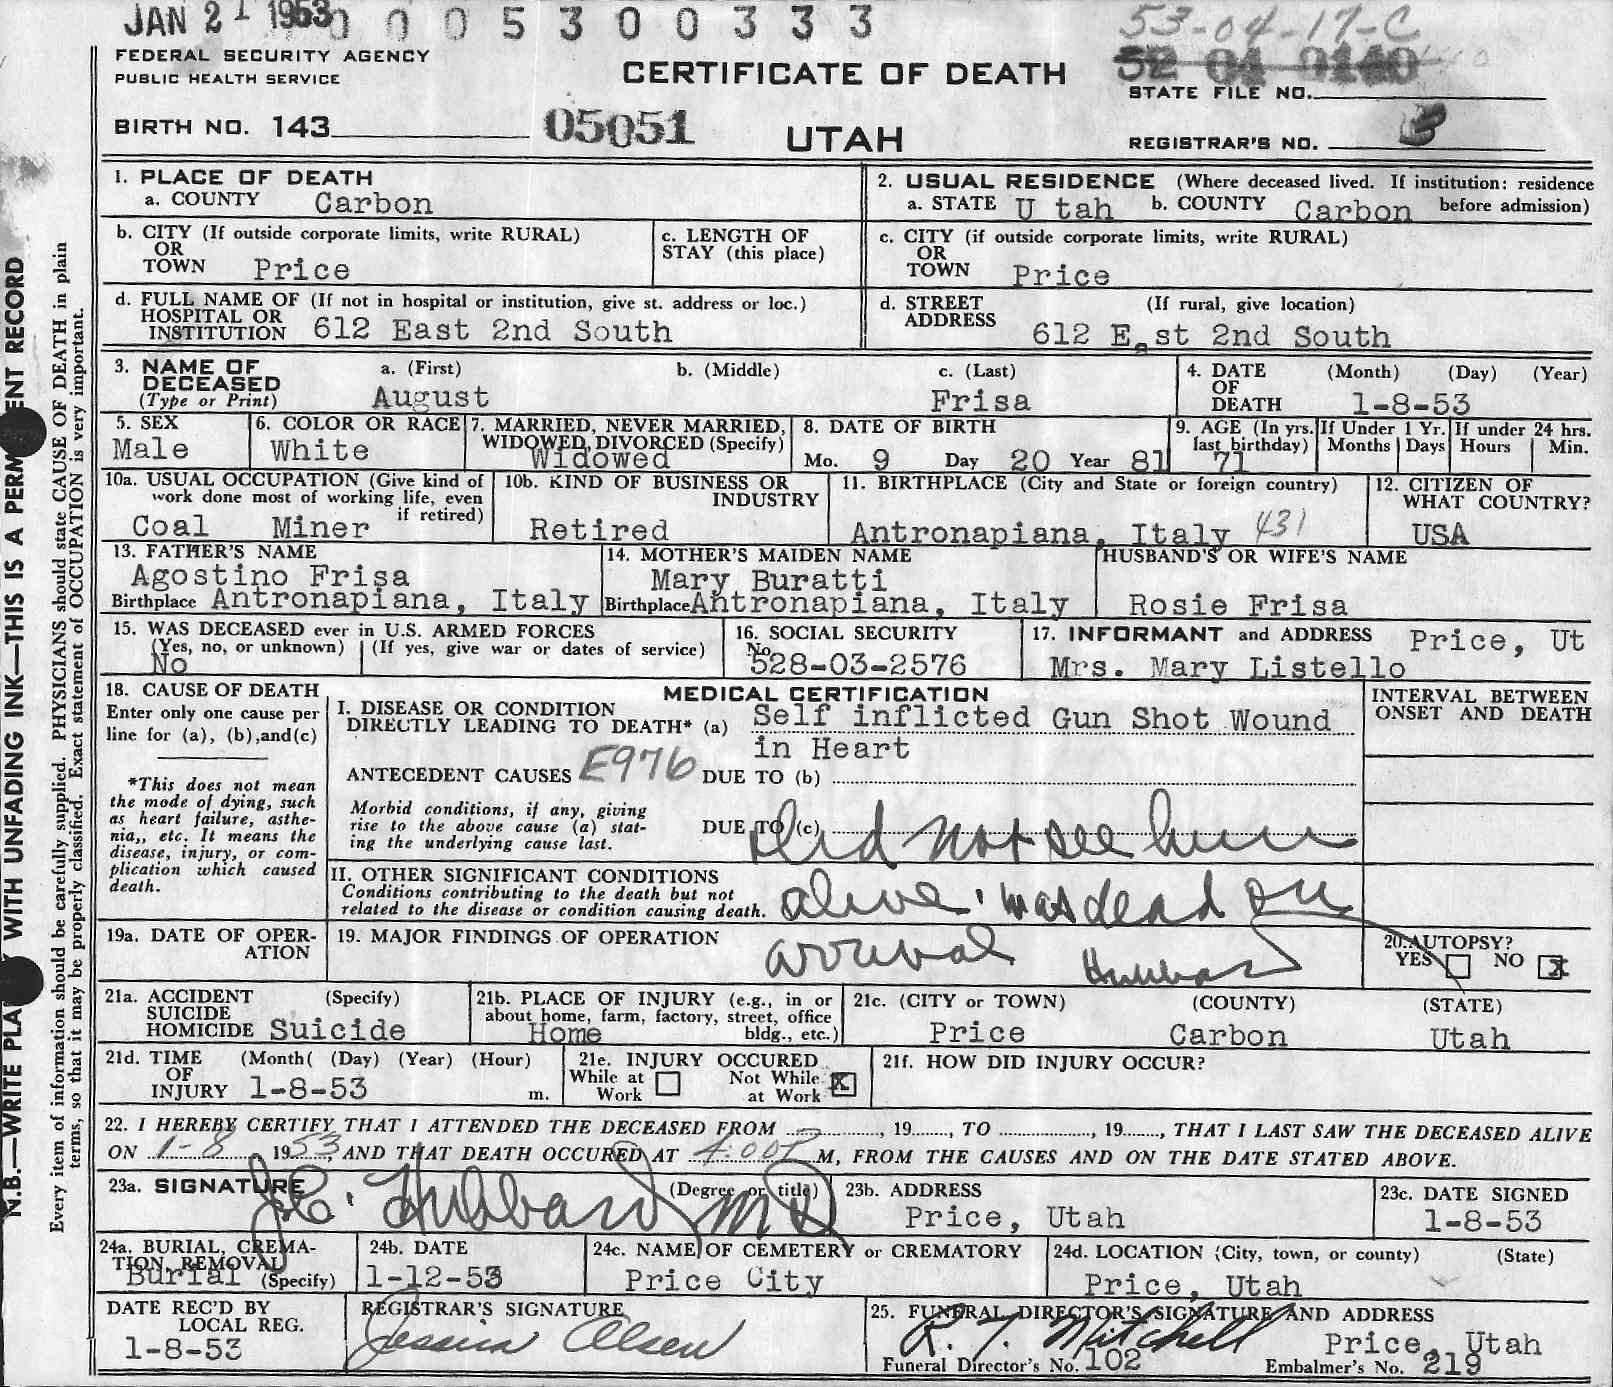 JAN 21 1953 0 0 0 5 3 0 0 3 3 3
53-04-17-C
FEDERAL SECURITY AGENCY
PUBLIC HEALTH SERVICE
CERTIFICATE OF DEATH
52 04 0140
STATE FILE NO.
BIRTH NO. 143 05051 UTAH
REGISTRAR'S NO. 3
1. PLACE OF DEATH
a. COUNTY Carbon
2. USUAL RESIDENCE (Where deceased lived. If institution: residence before admission)
a. STATE U tah b. COUNTY Carbon
b. CITY (If outside corporate limits, write RURAL)
OR
TOWN Price
c. LENGTH OF
STAY (this place)
c. CITY (if outside corporate limits, write RURAL)
OR
TOWN Price
d. FULL NAME OF (If not in hospital or institution, give st. address or loc.)
HOSPITAL OR
INSTITUTION 612 East 2nd South
d. STREET (If rural, give location)
ADDRESS 612 East 2nd South
3. NAME OF
DECEASED
(Type or Print)
a. (First) b. (Middle) c. (Last)
August Frisa
4. DATE (Month) (Day) (Year)
OF
DEATH 1-8-53
5. SEX
Male
6. COLOR OR RACE
White
7. MARRIED, NEVER MARRIED,
WIDOWED, DIVORCED (Specify)
Widowed
8. DATE OF BIRTH
Mo. 9 Day 20 Year 81
9. AGE (In yrs.
last birthday)
71
If Under 1 Yr.
Months Days
If under 24 hrs.
Hours Min.
10a. USUAL OCCUPATION (Give kind of
work done most of working life, even
if retired)
Coal Miner
10b. KIND OF BUSINESS OR
INDUSTRY
Retired
11. BIRTHPLACE (City and State or foreign country)
Antronapiana, Italy 431
12. CITIZEN OF
WHAT COUNTRY?
USA
13. FATHER'S NAME
Agostino Frisa
Birthplace Antronapiana, Italy
14. MOTHER'S MAIDEN NAME
Mary Buratti
Birthplace Antronapiana, Italy
HUSBAND'S OR WIFE'S NAME
Rosie Frisa
15. WAS DECEASED ever in U.S. ARMED FORCES
(Yes, no, or unknown) (If yes, give war or dates of service)
No
16. SOCIAL SECURITY
No.
528-03-2576
17. INFORMANT and ADDRESS Price, Ut
Mrs. Mary Listello
18. CAUSE OF DEATH
Enter only one cause per
line for (a), (b),and(c)
*This does not mean
the mode of dying, such
as heart failure, asthe-
nia,, etc. It means the
disease, injury, or com-
plication which caused
death.
MEDICAL CERTIFICATION
I. DISEASE OR CONDITION
DIRECTLY LEADING TO DEATH* (a) Self inflicted Gun Shot Wound
in Heart
ANTECEDENT CAUSES E976 DUE TO (b)
Morbid conditions, if any, giving
rise to the above cause (a) stat-
ing the underlying cause last.
DUE TO (c) Did not see him
INTERVAL BETWEEN
ONSET AND DEATH
II. OTHER SIGNIFICANT CONDITIONS
Conditions contributing to the death but not
related to the disease or condition causing death.
alive. was dead on
19a. DATE OF OPER-
ATION
19. MAJOR FINDINGS OF OPERATION
arrival Hubbard
20. AUTOPSY?
YES NO X
21a. ACCIDENT (Specify)
SUICIDE
HOMICIDE Suicide
21b. PLACE OF INJURY (e.g., in or
about home, farm, factory, street, office
bldg., etc.)
Home
21c. (CITY or TOWN) (COUNTY) (STATE)
Price Carbon Utah
21d. TIME (Month( (Day) (Year) (Hour)
OF
INJURY 1-8-53 m.
21e. INJURY OCCURED
While at
Work
Not While
at Work X
21f. HOW DID INJURY OCCUR?
22. I HEREBY CERTIFY THAT I ATTENDED THE DECEASED FROM , 19 , TO , 19 , THAT I LAST SAW THE DECEASED ALIVE
ON 1-8, 1953, AND THAT DEATH OCCURED AT 4:00P M, FROM THE CAUSES AND ON THE DATE STATED ABOVE.
23a. SIGNATURE (Degree or title)
Hubbard MD
23b. ADDRESS
Price, Utah
23c. DATE SIGNED
1-8-53
24a. BURIAL, CREMA-
TION, REMOVAL
Burial (Specify)
24b. DATE
1-12-53
24c. NAME OF CEMETERY or CREMATORY
Price City
24d. LOCATION (City, town, or county) (State)
Price, Utah
DATE REC'D BY
LOCAL REG.
1-8-53
REGISTRAR'S SIGNATURE
Jessica Olsen
25. FUNERAL DIRECTOR'S SIGNATURE AND ADDRESS
R. T. Mitchell Price, Utah
Funeral Director's No. 102 Embalmer's No. 219
N.B.—WRITE PLA WITH UNFADING INK—THIS IS A PERM ENT RECORD
Every item of information should be carefully supplied. PHYSICIANS should state CAUSE OF DEATH in plain
terms, so that it may be properly classified. Exact statement of OCCUPATION is very important.